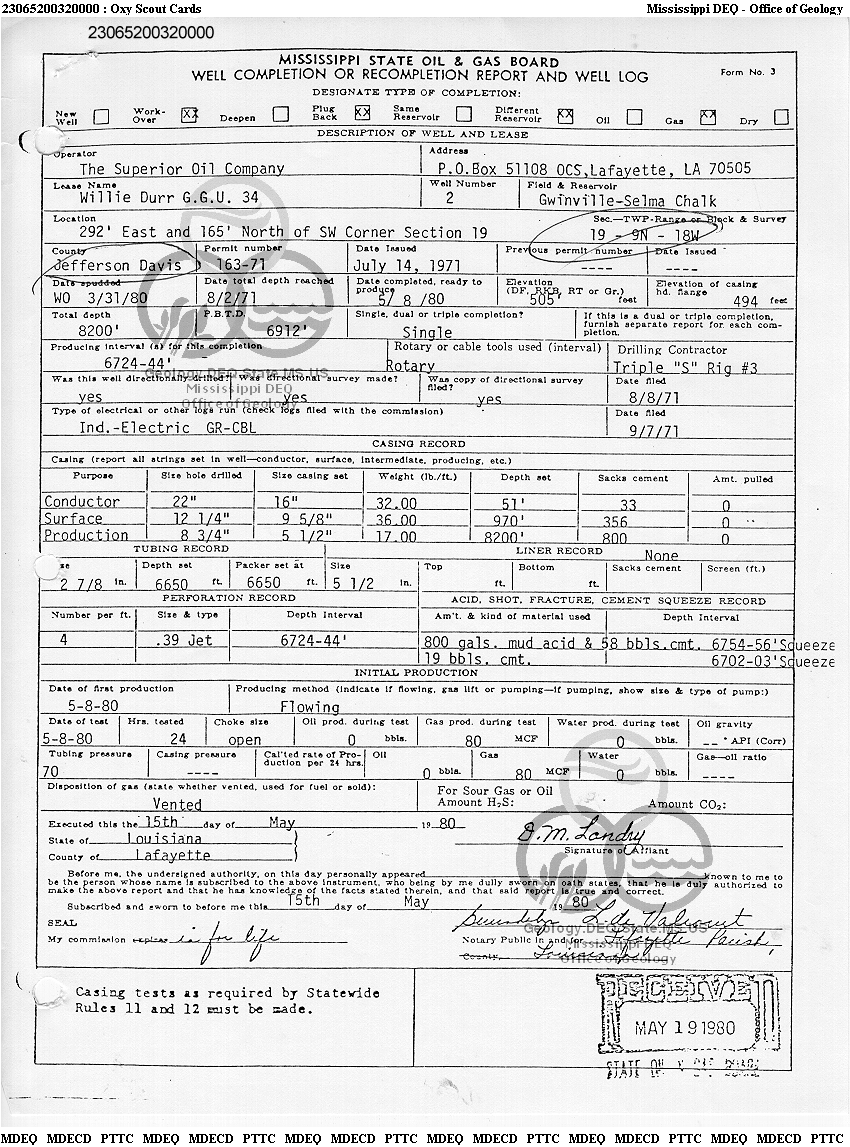 23065200320000 : Oxy Scout Cards Mississippi DEQ - Office of Geology
23065200320000
MISSISSIPPI STATE OIL & GAS BOARD
WELL COMPLETION OR RECOMPLETION REPORT AND WELL LOG Form No. 3
DESIGNATE TYPE OF COMPLETION:
New Well Work-Over XX Deepen Plug Back XX Same Reservoir Different Reservoir XX Oil Gas XX Dry
DESCRIPTION OF WELL AND LEASE
Operator Address
The Superior Oil Company P.O.Box 51108 OCS,Lafayette, LA 70505
Lease Name Well Number Field & Reservoir
Willie Durr G.G.U. 34 2 Gwinville-Selma Chalk
Location Sec.—TWP-Range or Block & Survey
292' East and 165' North of SW Corner Section 19 19 - 9N - 18W
County Permit number Date Issued Previous permit number Date Issued
Jefferson Davis 163-71 July 14, 1971 ---- ----
Date spudded Date total depth reached Date completed, ready to produce Elevation (DF, RKB, RT or Gr.) Elevation of casing hd. flange
WO 3/31/80 8/2/71 5/ 8 /80 505' feet 494 feet
Total depth P.B.T.D. Single, dual or triple completion? If this is a dual or triple completion, furnish separate report for each completion.
8200' 6912' Single
Producing interval (s) for this completion Rotary or cable tools used (interval) Drilling Contractor
6724-44' Rotary Triple "S" Rig #3
Geology.DEQ.State.MS.US
Was this well directionally drilled? Was directional survey made? Was copy of directional survey filed? Date filed
Mississippi DEQ
yes yes yes 8/8/71
Office of Geology
Type of electrical or other logs run (check logs filed with the commission) Date filed
Ind.-Electric GR-CBL 9/7/71
CASING RECORD
Casing (report all strings set in well—conductor, surface, intermediate, producing, etc.)
Purpose Size hole drilled Size casing set Weight (lb./ft.) Depth set Sacks cement Amt. pulled
Conductor 22" 16" 32.00 51' 33 0
Surface 12 1/4" 9 5/8" 36.00 970' 356 0
Production 8 3/4" 5 1/2" 17.00 8200' 800 0
TUBING RECORD LINER RECORD None
Depth set Packer set at Size Top Bottom Sacks cement Screen (ft.)
2 7/8 in. 6650 ft. 6650 ft. 5 1/2 in. ft. ft.
PERFORATION RECORD ACID, SHOT, FRACTURE, CEMENT SQUEEZE RECORD
Number per ft. Size & type Depth Interval Am't. & kind of material used Depth Interval
4 .39 Jet 6724-44' 800 gals. mud acid & 58 bbls.cmt. 6754-56'Squeeze
19 bbls. cmt. 6702-03'Squeeze
INITIAL PRODUCTION
Date of first production Producing method (indicate if flowing, gas lift or pumping—if pumping, show size & type of pump:)
5-8-80 Flowing
Date of test Hrs. tested Choke size Oil prod. during test Gas prod. during test Water prod. during test Oil gravity
5-8-80 24 open 0 bbls. 80 MCF 0 bbls. -- ° API (Corr)
Tubing pressure Casing pressure Cal'ted rate of Production per 24 hrs. Oil Gas Water Gas—oil ratio
70 ---- 0 bbls. 80 MCF 0 bbls. ----
Disposition of gas (state whether vented, used for fuel or sold): For Sour Gas or Oil
Vented Amount H2S: Amount CO2:
Executed this the 15th day of May 19 80 D.M. Landry
State of Louisiana Signature of Affiant
County of Lafayette
Before me, the undersigned authority, on this day personally appeared known to me to
be the person whose name is subscribed to the above instrument, who being by me dully sworn on oath states, that he is duly authorized to
make the above report and that he has knowledge of the facts stated therein, and that said report is true and correct.
Subscribed and sworn to before me this 15th day of May 19 80
SEAL
Geology.DEQ.State.MS.US
My commission expires is for life Notary Public in and for Lafayette Parish,
Mississippi DEQ
County, Louisiana
Office of Geology
Casing tests as required by Statewide
Rules 11 and 12 must be made.
RECEIVED
MAY 19 1980
STATE OIL & GAS BOARD
MDEQ MDECD PTTC MDEQ MDECD PTTC MDEQ MDECD PTTC MDEQ MDECD PTTC MDEQ MDECD PTTC MDEQ MDECD PTTC